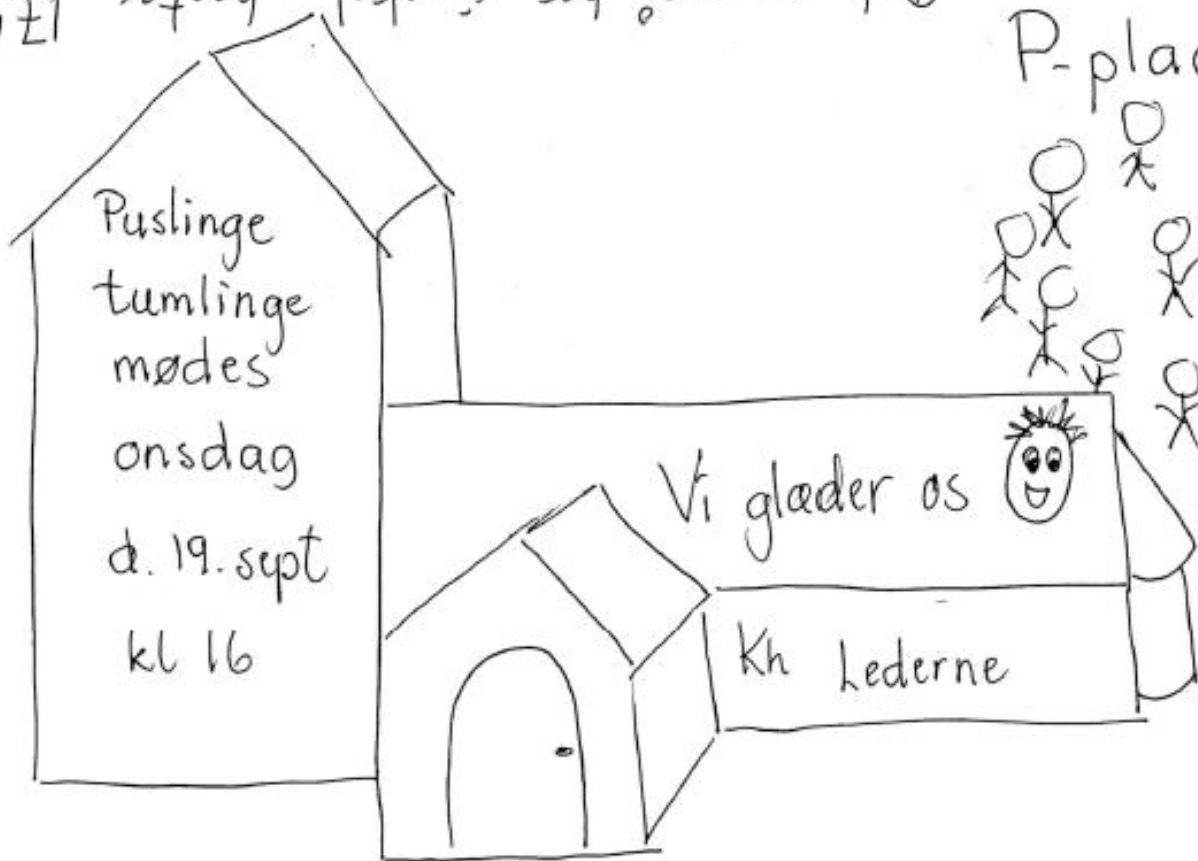 P-pla
Puslinge
tumlinge
mødes
onsdag
d. 19. sept
kl 16
Vi glæder os
Kh Lederne